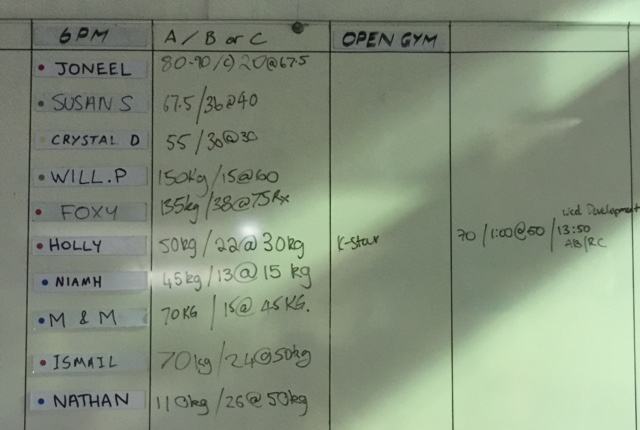 6PM A / B or C OPEN GYM
JONEEL 80-90 / c) 20@67.5
SUSAN S 67.5/36@40
CRYSTAL D 55 /30@30
WILL.P 150kg /15@60
FOXY 135kg /38@75Rx
HOLLY 50kg / 22@30kg K-Star 70 / 1:00@50 / 13:50
NIAMH 45kg /13@15 kg
M & M 70KG / 15@ 45KG.
ISMAIL 70kg /24@50kg
NATHAN 110kg /26@50kg